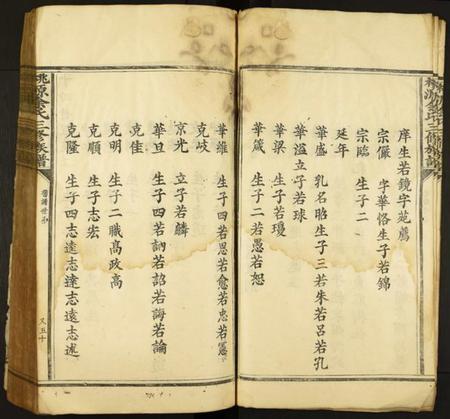 庠生若鏡字苑薦
宗儼 字華恪生子若錦
宗臨 生子二
延年
華盛 乳名昭生子三若朱若呂若孔
華溢立子若球
華梁 生子若瓊
華箴 生子二若愚若恕
華維 生子四若思若愈若忠若慝
克岐
京光 立子若麟
華旦 生子四若訥若詔若誨若論
克佳
克明 生子二職高政高
克順 生子志宏
克隆 生子四志遠志達志遠志述
桃源余氏三修族譜
又五十